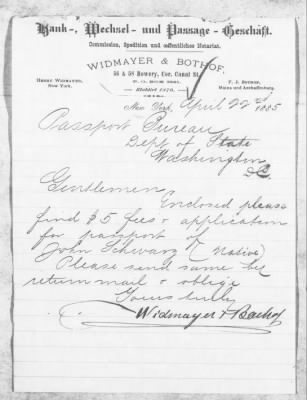 Bank-, Wechsel- und Passage-Geschäft.
Commission, Spedition und oeffentliches Notariat.
WIDMAYER & BOTHOF,
56 & 58 Bowery, Cor. Canal St.
P. O. BOX
Etablirt 1870.
HENRY WIDMAYER,
New York.
F. J. BOTHOF,
Mainz und Aschaffenburg.
New York, April 22nd 1885
Passport Bureau
Dept of State
Washington
DC
Gentlemen
Enclosed please
find $5 fees & application
for passport of
John Schwarz (Native)
Please send same by
return mail & oblige
Yours truly
Widmayer & Bothof